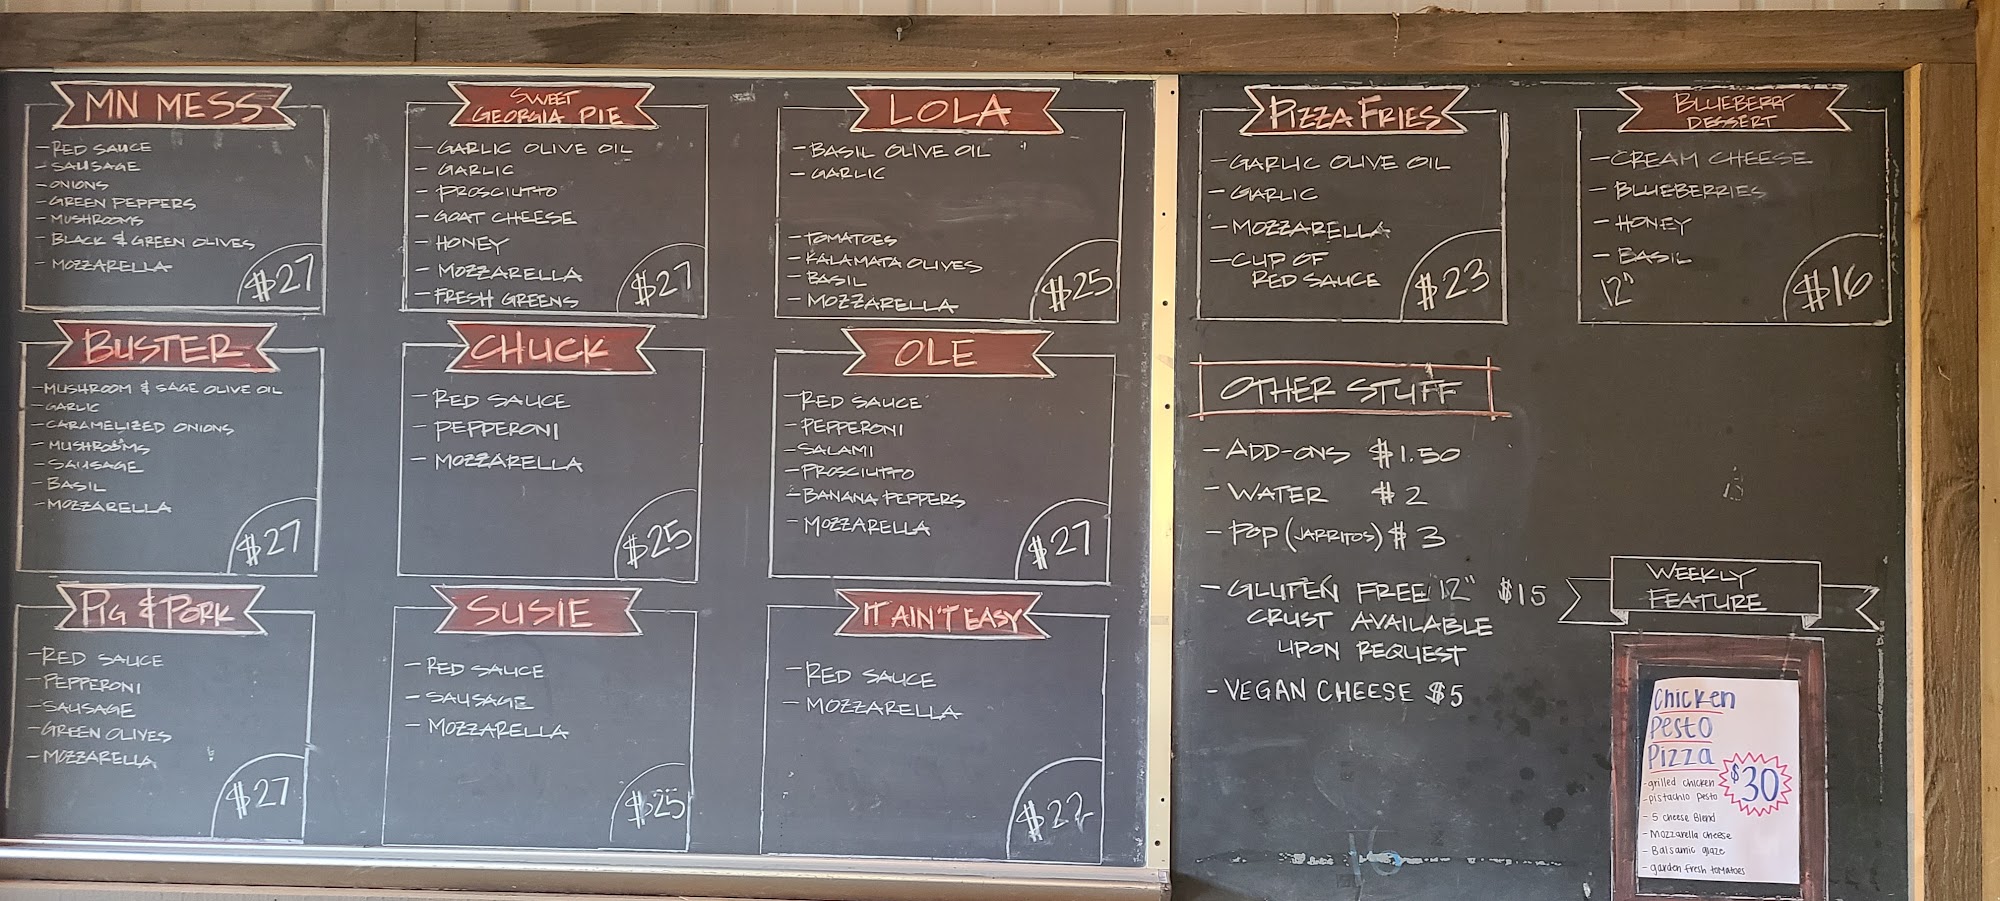 MN MESS
- RED SAUCE
- SAUSAGE
- ONIONS
- GREEN PEPPERS
- MUSHROOMS
- BLACK & GREEN OLIVES
- MOZZARELLA
$27
SWEET
GEORGIA PIE
- GARLIC OLIVE OIL
- GARLIC
- PROSCIUTTO
- GOAT CHEESE
- HONEY
- MOZZARELLA
- FRESH GREENS
$27
LOLA
- BASIL OLIVE OIL
- GARLIC
- TOMATOES
- KALAMATA OLIVES
- BASIL
- MOZZARELLA
$25
BUSTER
- MUSHROOM & SAGE OLIVE OIL
- GARLIC
- CARAMELIZED ONIONS
- MUSHROOMS
- SAUSAGE
- BASIL
- MOZZARELLA
$27
CHUCK
- RED SAUCE
- PEPPERONI
- MOZZARELLA
$25
OLE
- RED SAUCE
- PEPPERONI
- SALAMI
- PROSCIUTTO
- BANANA PEPPERS
- MOZZARELLA
$27
PIG & PORK
- RED SAUCE
- PEPPERONI
- SAUSAGE
- GREEN OLIVES
- MOZZARELLA
$27
SUSIE
- RED SAUCE
- SAUSAGE
- MOZZARELLA
$25
IT AIN'T EASY
- RED SAUCE
- MOZZARELLA
$22
PIZZA FRIES
- GARLIC OLIVE OIL
- GARLIC
- MOZZARELLA
- CUP OF
RED SAUCE
$23
BLUEBERRY
DESSERT
- CREAM CHEESE
- BLUEBERRIES
- HONEY
- BASIL
12"
$16
OTHER STUFF
- ADD-ONS $1.50
- WATER $2
- POP (JARRITOS) $3
- GLUTEN FREE 12" $15
CRUST AVAILABLE
UPON REQUEST
- VEGAN CHEESE $5
WEEKLY
FEATURE
Chicken
Pesto
Pizza
$30
- grilled chicken
- pistachio pesto
- 5 cheese Blend
- Mozzarella cheese
- Balsamic glaze
- garden fresh tomatoes